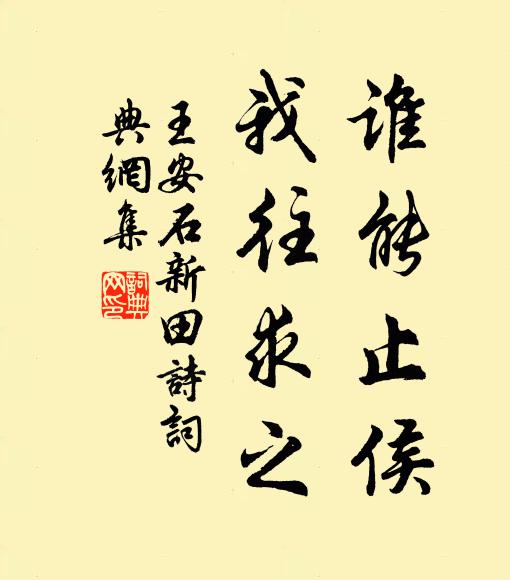 誰能止侯
我往求之
王安石新田詩詞
典網集
詞典網印